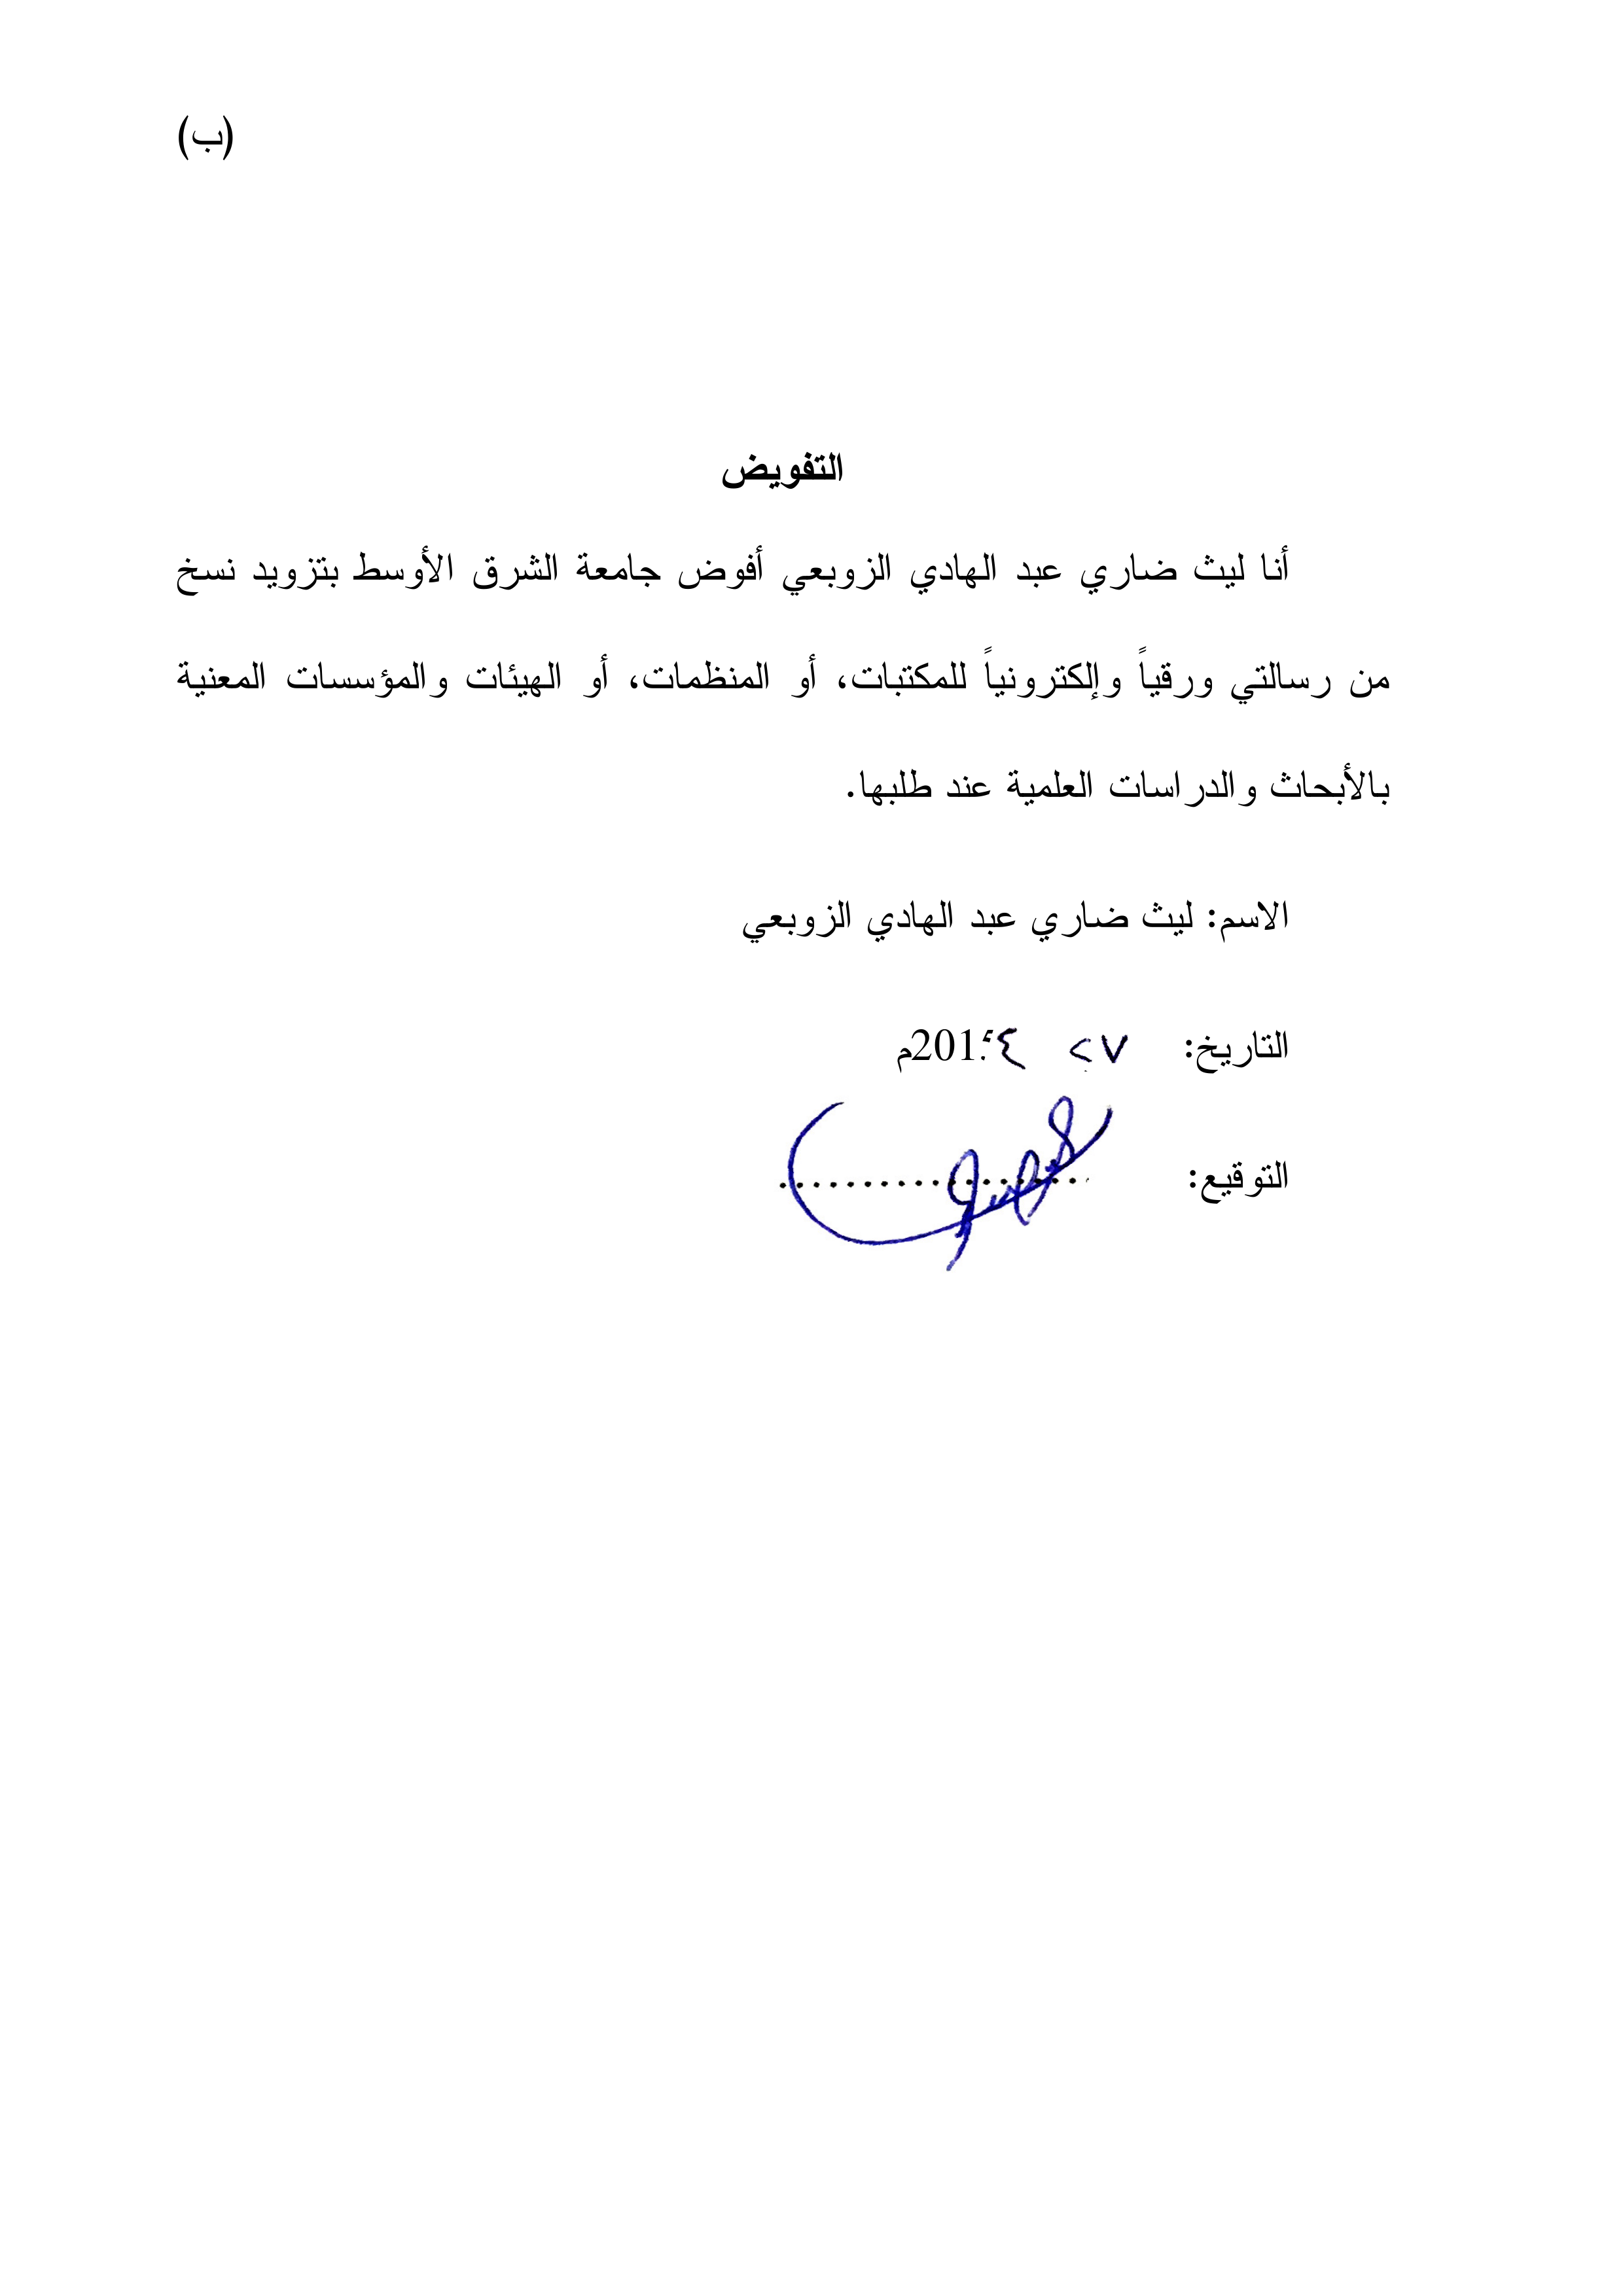 (ب)
التفويض
أنا ليث ضاري عبد الهادي الزوبعي أفوض جامعة الشرق الأوسط بتزويد نسخ
من رسالتي ورقياً وإلكترونياً للمكتبات، أو المنظمات، أو الهيئات والمؤسسات المعنية
بالأبحاث والدراسات العلمية عند طلبها.
الاسم: ليث ضاري عبد الهادي الزوبعي
التاريخ:
التوقيع: ....................